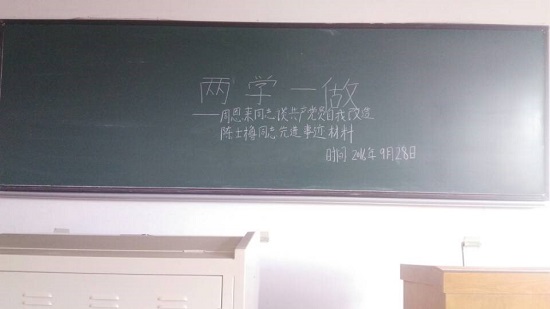 两学一做
——周恩来同志谈共产党员自我改造
陈士榜同志先进事迹材料
时间 2016年9月28日